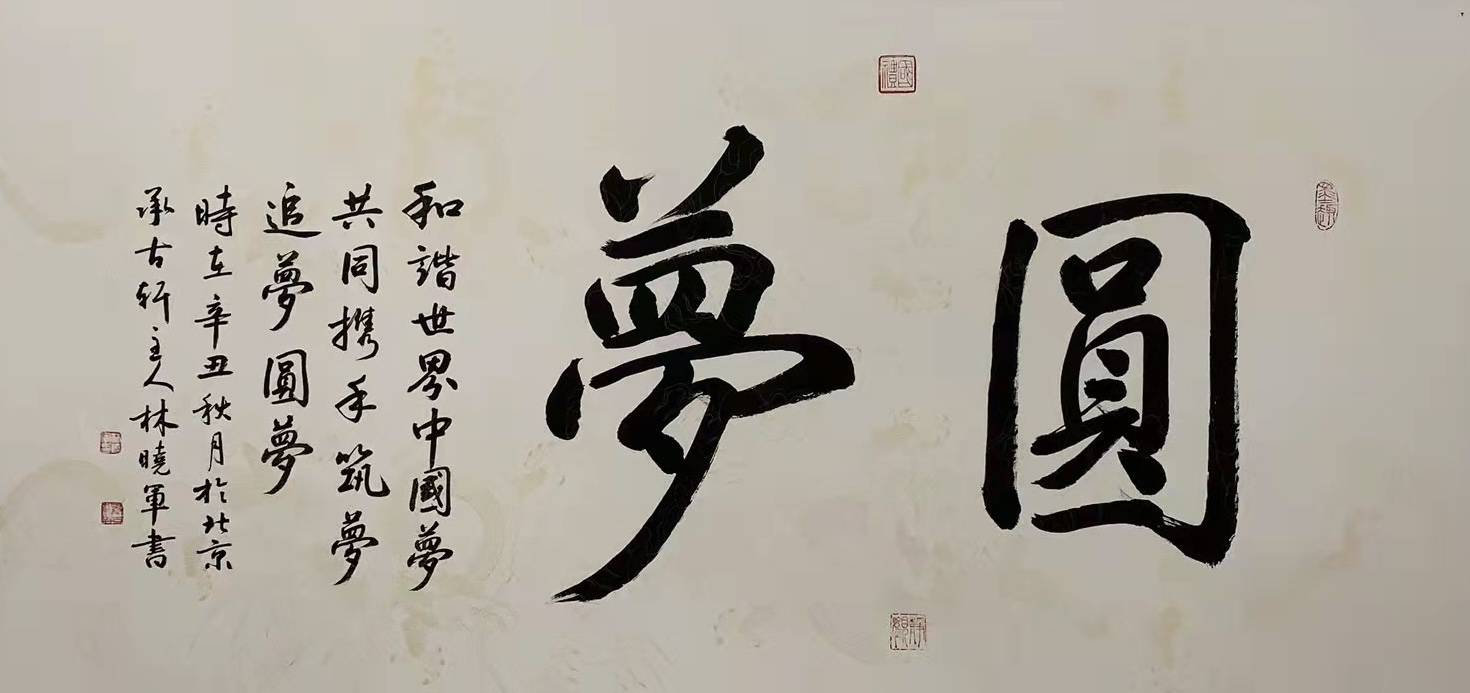 圓夢
和諧世界中國夢
共同携手筑夢
追夢圓夢
時在辛丑秋月於北京
承古軒主人林曉軍書
國禮